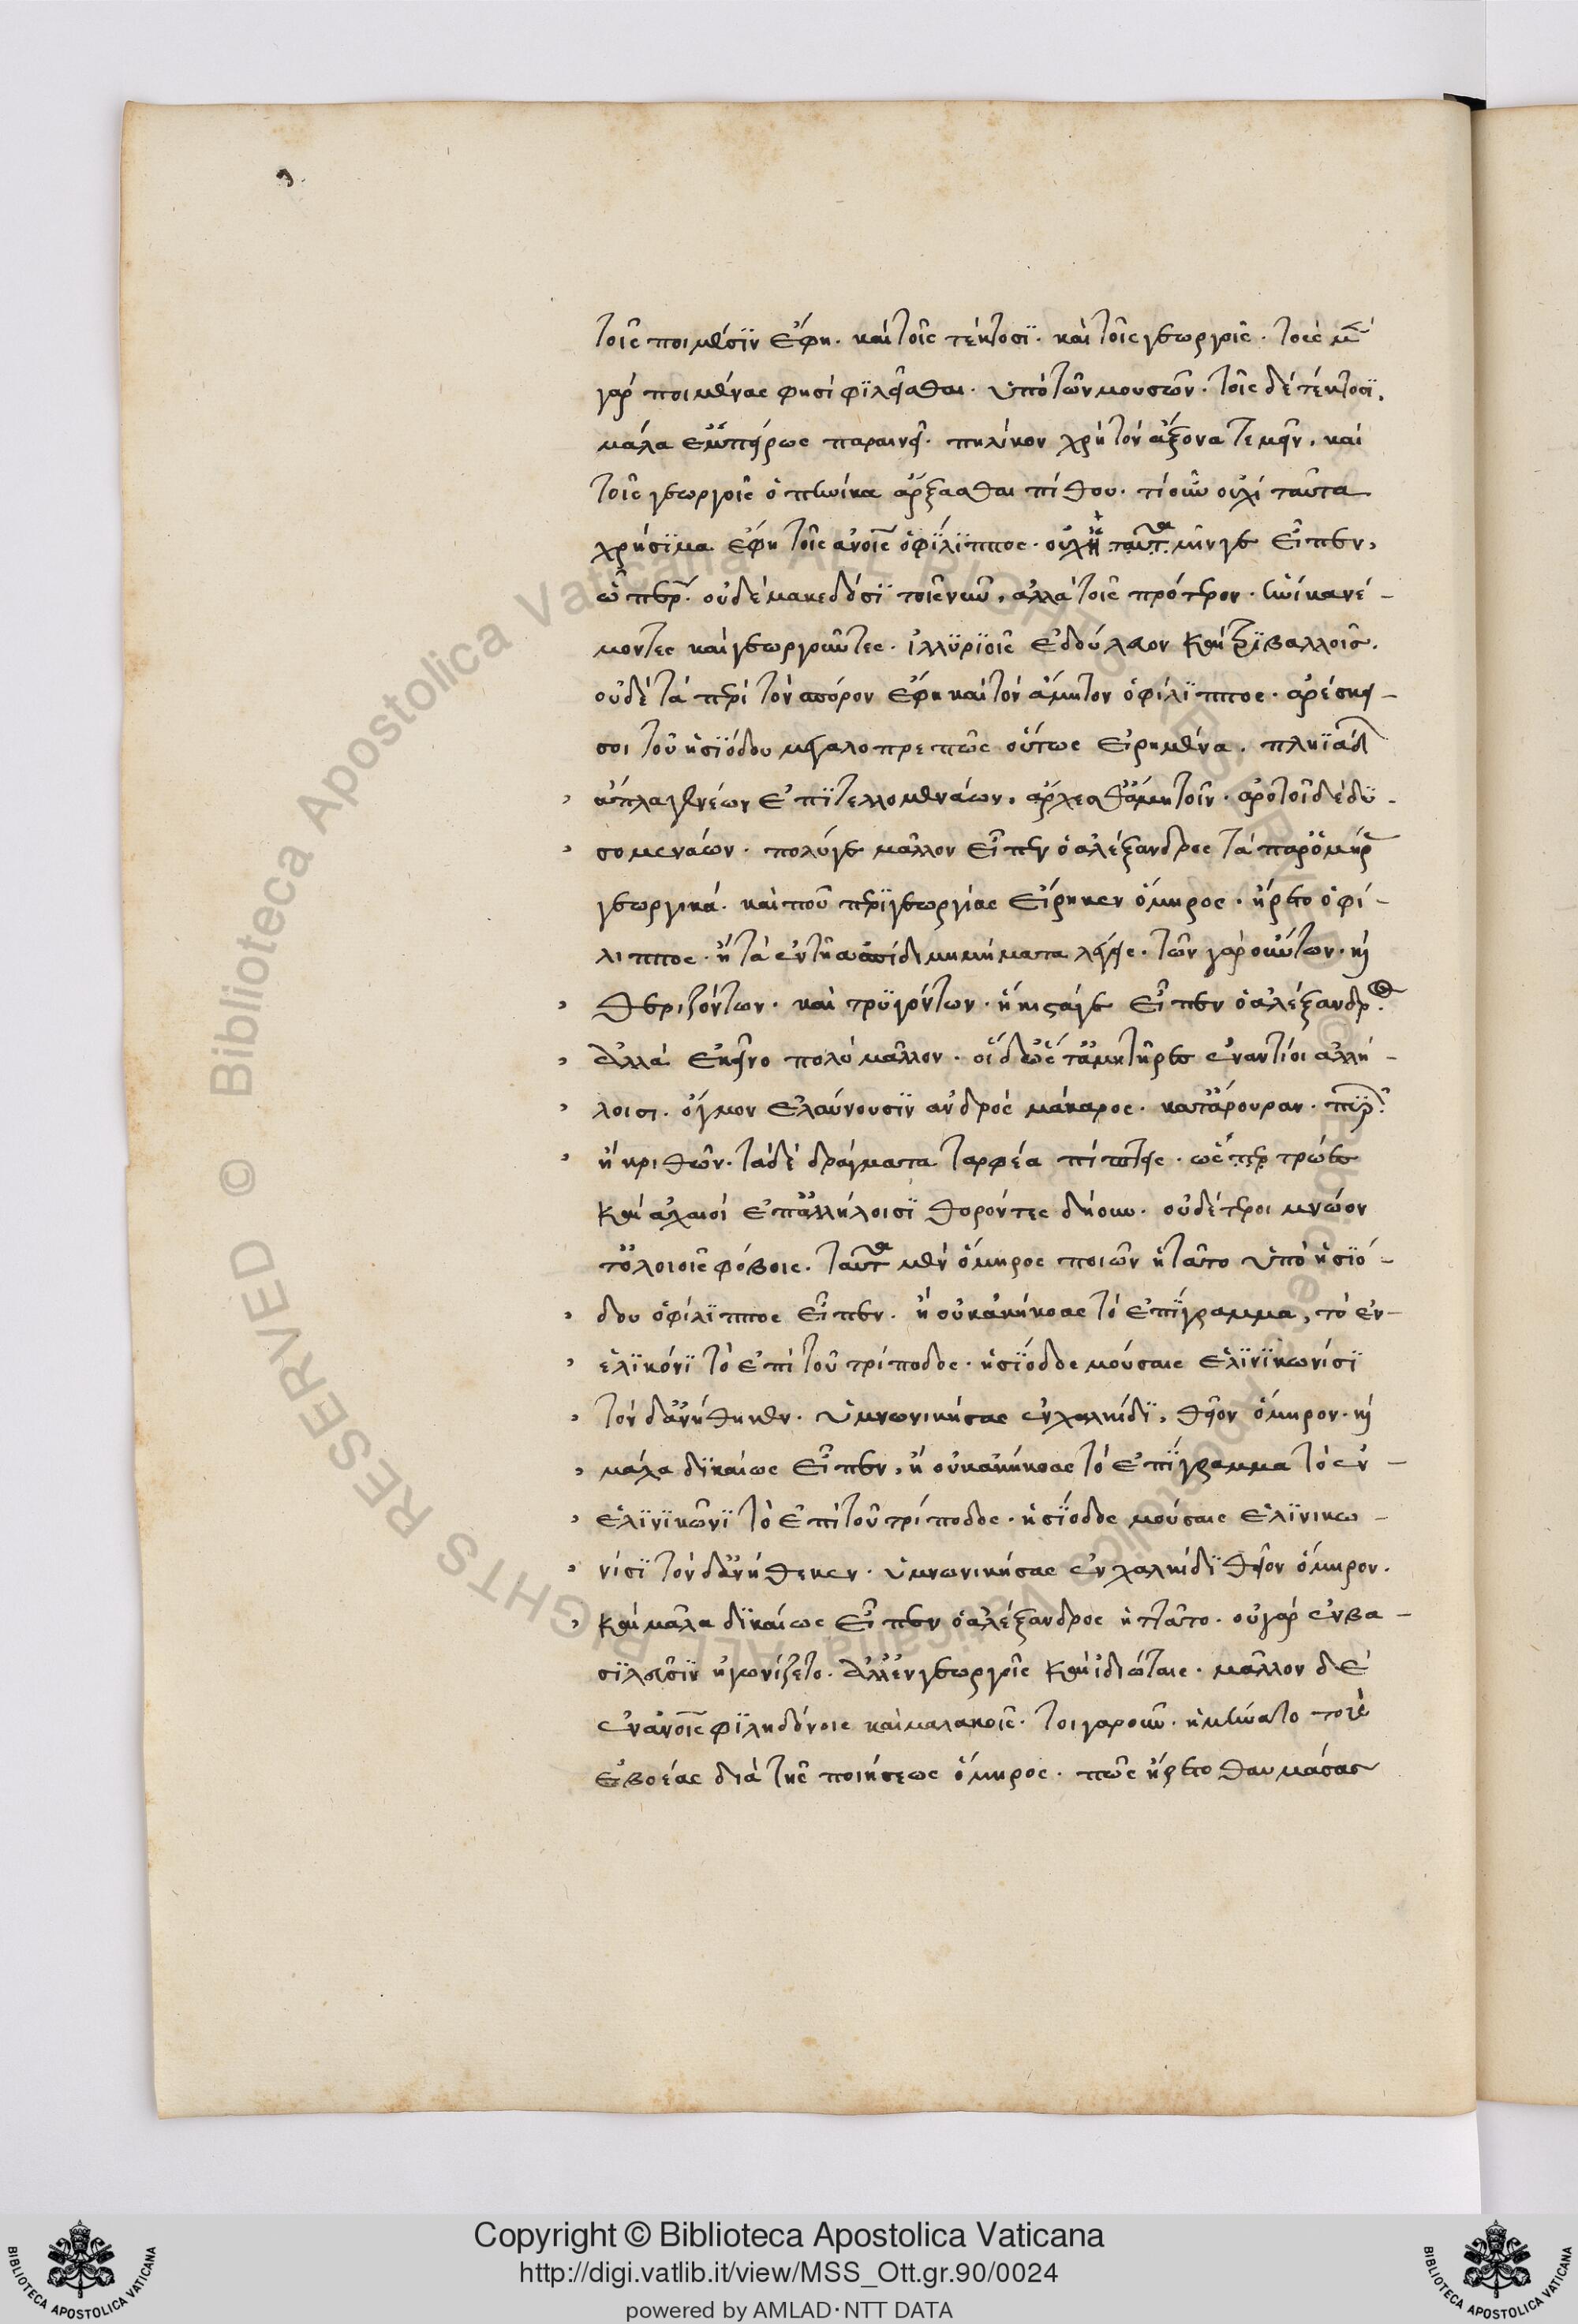 τοῖς ποιμέσϊν ἔφη· καὶ τοῖς τέκτοσϊ· καὶ τοῖς γεωργοῖς· τοὺς μὲν
γὰρ ποιμένας φησὶ φϊλεῖσθαι· ὑπὸ τῶν μουσῶν· τοῖς δὲ τέκτοσϊ,
μάλα ἐμπείρως παραινεῖ· πηλίκον χρὴ τὸν ἄξονα τεμεῖν, καὶ
τοῖς γεωργοῖς ὁπηνίκα ἄρξασθαι πίθου· τί οὖν οὐχὶ ταῦτα
χρήσϊμα ἔφη τοῖς ἀνοῖς ὁ φϊλϊππος· οὐχ ἡμῖν γε εἶπεν,
ὦ περ· οὐδὲ μακεδόσϊ τοῖς νῦν, ἀλλὰ τοῖς πρότερον· ἡνίκα νέ-
μοντες καὶ γεωργοῦντες· ἰλλϋρϊοῖς ἐδούλευον καὶ τρϊβαλλοῖς.
οὐδὲ τὰ περὶ τὸν σπόρον ἔφη καὶ τὸν ἄμητον ὁ φιλϊππος· ἀρέσκει
σοι τοῦ ἡσϊόδου μεγαλοπρεπῶς οὕτως εἰρημένα. πληϊάδ
ἀτλαγενέων ἐπϊτελλομενάων, ἄρχεσθ' ἀμητοῖν· ἀρότοῖ δὲ δϋ-
σομενάων· πολύ γε μᾶλλον εἶπεν ὁ ἀλέξανδρος τὰ παρ' ὁμήρ
γεωργικά· καὶ ποῦ περϊ γεωργίας εἴρηκεν ὅμηρος· ἤρετο ὁ φί-
λιππος· ἢ τὰ ἐν τῇ ἀσπίδι μιμήματα λέγεις· τῶν γὰρ οὕντων· καὶ
θεριζόντων· καὶ τρϋγόντων· ἥκιστά γε εἶπεν ὁ ἀλέξανδρος
ἀλλὰ ἐκεῖνο πολὺ μᾶλλον· οἳ δ' ὥς τ' ἀμητῆρες ἐναντίοι ἀλλή-
λοισι· ὄγμον ἐλαύνουσϊν ἀνδρὸς μάκαρος· κατ' ἄρουραν· πϋρ
ἢ κριθῶν· τὰ δὲ δράγματα ταρφέα πίπτει· ὥς περ τρῶες
καὶ ἀχαιοὶ ἐπ' ἀλλήλοισϊ θορόντες δήουν· οὐδέτεροι μνώον
τ' ὀλοιοῖς φόβοις· ταῦτα μὲν ὅμηρος ποιῶν ἡτᾶτο ὑπὸ ἡσϊό-
δου ὁ φίλϊππος εἶπεν· ἢ οὐκ ἀκήκοας τὸ ἐπϊγραμμα, τὸ ἐν-
ἑλϊκόνϊ τὸ ἐπὶ τοῦ τρίποδος· ἡσϊοδος μούσαις ἑλϊνϊκωνίσϊ
τόνδ' ἀνήθηκεν· ὑμνωνικήσας ἐν χαλκίδϊ, θεῖον ὅμηρον· καὶ
μάλα δϊκαίως εἶπεν, ἢ οὐκ ἀκήκοας τὸ ἐπϊγραμμα τὸ ἐν-
ἑλϊνϊκῶνϊ τὸ ἐπὶ τοῦ τρίποδος· ἡσϊοδος μούσαις ἑλϊνικω-
νίσϊ τόνδ' ἀνήθεκεν· ὑμνωνικήσας ἐν χαλκίδϊ θεῖον ὅμηρον.
καὶ μᾶλα δϊκαίως εἶπεν ὁ ἀλέξανδρος ἡττᾶτο· οὐ γὰρ ἐν βα-
σϊλεῦσϊν ἠγωνίζετο· ἀλλ' ἐν γεωργοῖς καὶ ἰδιώταις· μᾶλλον δὲ
ἐν ἀνοῖς φϊληδόνοις καὶ μαλακοῖς· τοιγαροῦν· ἠμύνατο τοὺς
εὐβοέας διὰ τῆς ποιήσεως ὅμηρος· πῶς ἤρετο θαυμάσας